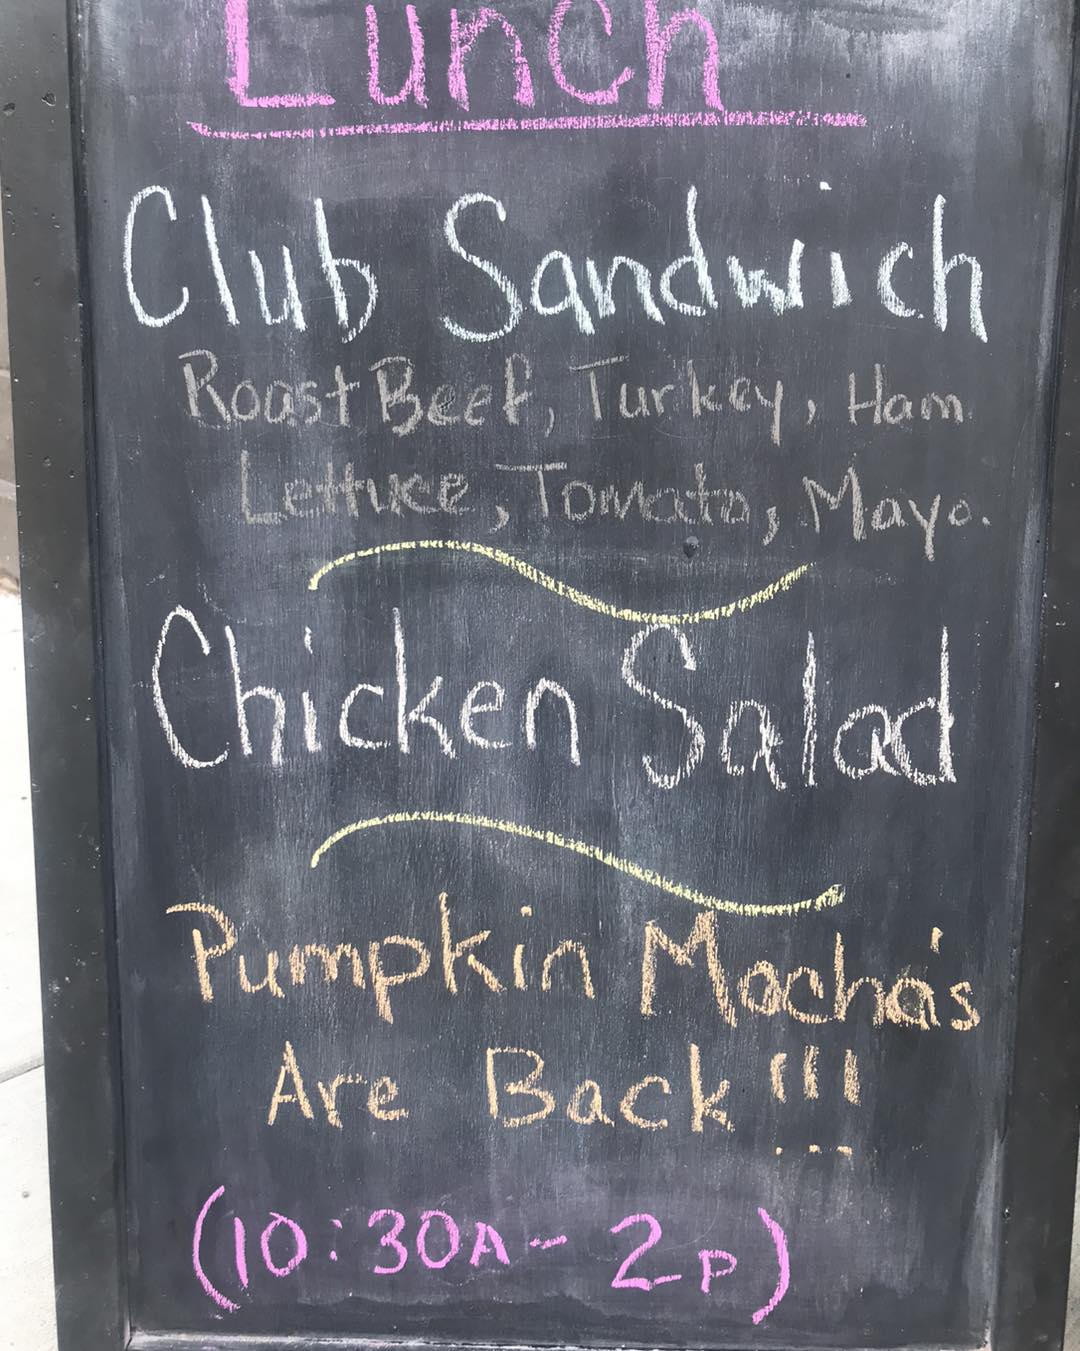 Lunch
Club Sandwich
Roast Beef, Turkey, Ham
Lettuce, Tomato, Mayo.
Chicken Salad
Pumpkin Mocha's
Are Back!!!
(10:30A - 2P)